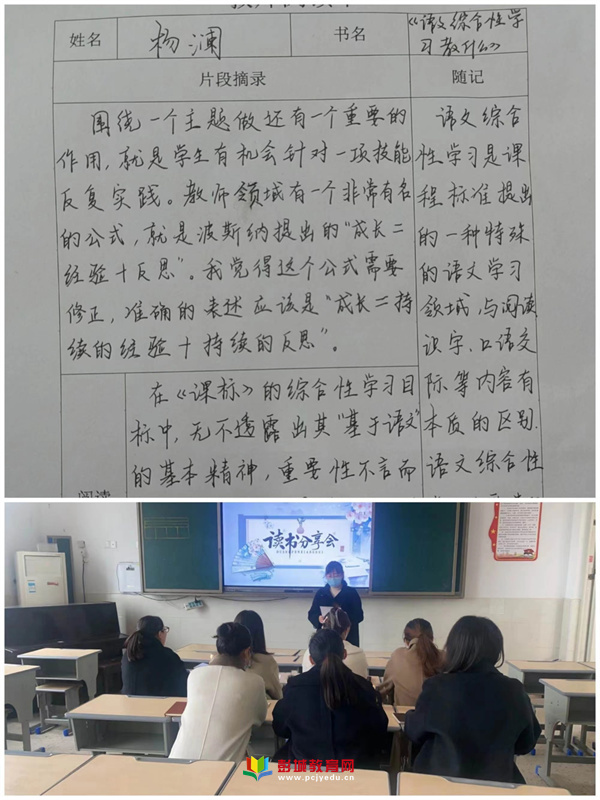 姓名
杨澜
书名
《语文综合性学
习教什么》
片段摘录
随记
围绕一个主题做还有一个重要的
作用，就是学生有机会针对一项技能
反复实践。教师领域有一个非常有名
的公式，就是波斯纳提出的“成长=
经验+反思”。我觉得这个公式需要
修正，准确的表述应该是“成长=持
续的经验+持续的反思”。
语文综合
性学习是课
程标准提出
的一种特殊
的语文学习
领域，与阅读
识字、口语交
际等内容有
本质的区别.
语文综合性
在《课标》的综合性学习目
标中，无不透露出其“基于语文”
的基本精神，重要性不言而
阅读
读书分享会
彭城教育网
www.pcjyedu.cn